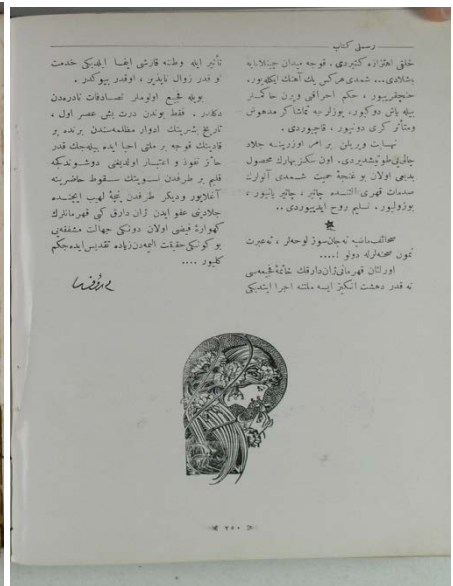 رسملی کتاب
خلقی اهتزازه کتیردی. قوجه میدان چینلامایه
باشلادی... شمدی هرکس یك آهنك ایکله‌یور.
حیچقیریبور، حکم احراقی ویرن حاکملر
بیله یاش دوکیور، یوزلرجه تماشاکر مدهوش
ومتأثر کری دونیور، قاچیوردی.
نهایت ویریلن بر امر اوزرینه جلاد
چالی‌یی طوتیشدیردی. اون سکز بهارك محصول
بدیعی اولان بو غنچهٔ حمیت شمدی آلولرك
صدمات قهری آلتنده چاتیر، چاتیر یانیور،
بوزولیور. تسلیم روح ایدییوردی..
صحائف‌مانیه نه‌جان‌سوز لوحه‌لر، نه‌عبرت
نمون صحنه‌لرله دولو!....
اورلئان قهرمانی ژان‌دارقك خاتمهٔ فجیعه‌سی
نه قدر دهشت انکیز ایسه ملتنه اجرا ایتدیکی
تأثیر ایله وطنه قارشی ایفا ایلدیکی خدمت
او قدر زوال ناپذیر، اوقدر بیوکدر.
بویله فجیع اولوملر تصادفات نادره‌دن
دکلدر. فقط بوندن درت بش عصر اول،
تاریخ بشریتك ادوار مظلمه‌سندن برنده بر
قادینك قوجه بر ملتی احیا ایده بیله‌جك قدر
حائز نفوذ و اعتبار اولدیغنی دوشوندکجه
قلبم بر طرفدن نسویتك سقوط حاضرینه
آغلایور ودیکر طرفدن لهیب ایچنده
جلادینی عفو ایدن ژان دارق کبی قهرمانلرك
کهوارهٔ فیضی اولان دونکی جهالت مشفقه‌یی
بو کونکی حقیقت الیمه‌دن زیاده تقدیس ایده‌جکم
کلیور....
٢٥٠